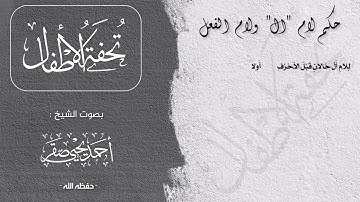 حكم لام "ال" ولام الفعل
للام أل حالان قبل الأحرف أولا
تحفة الأطفال
بصوت الشيخ :
أحمد يحيى صقر
- حفظه الله -